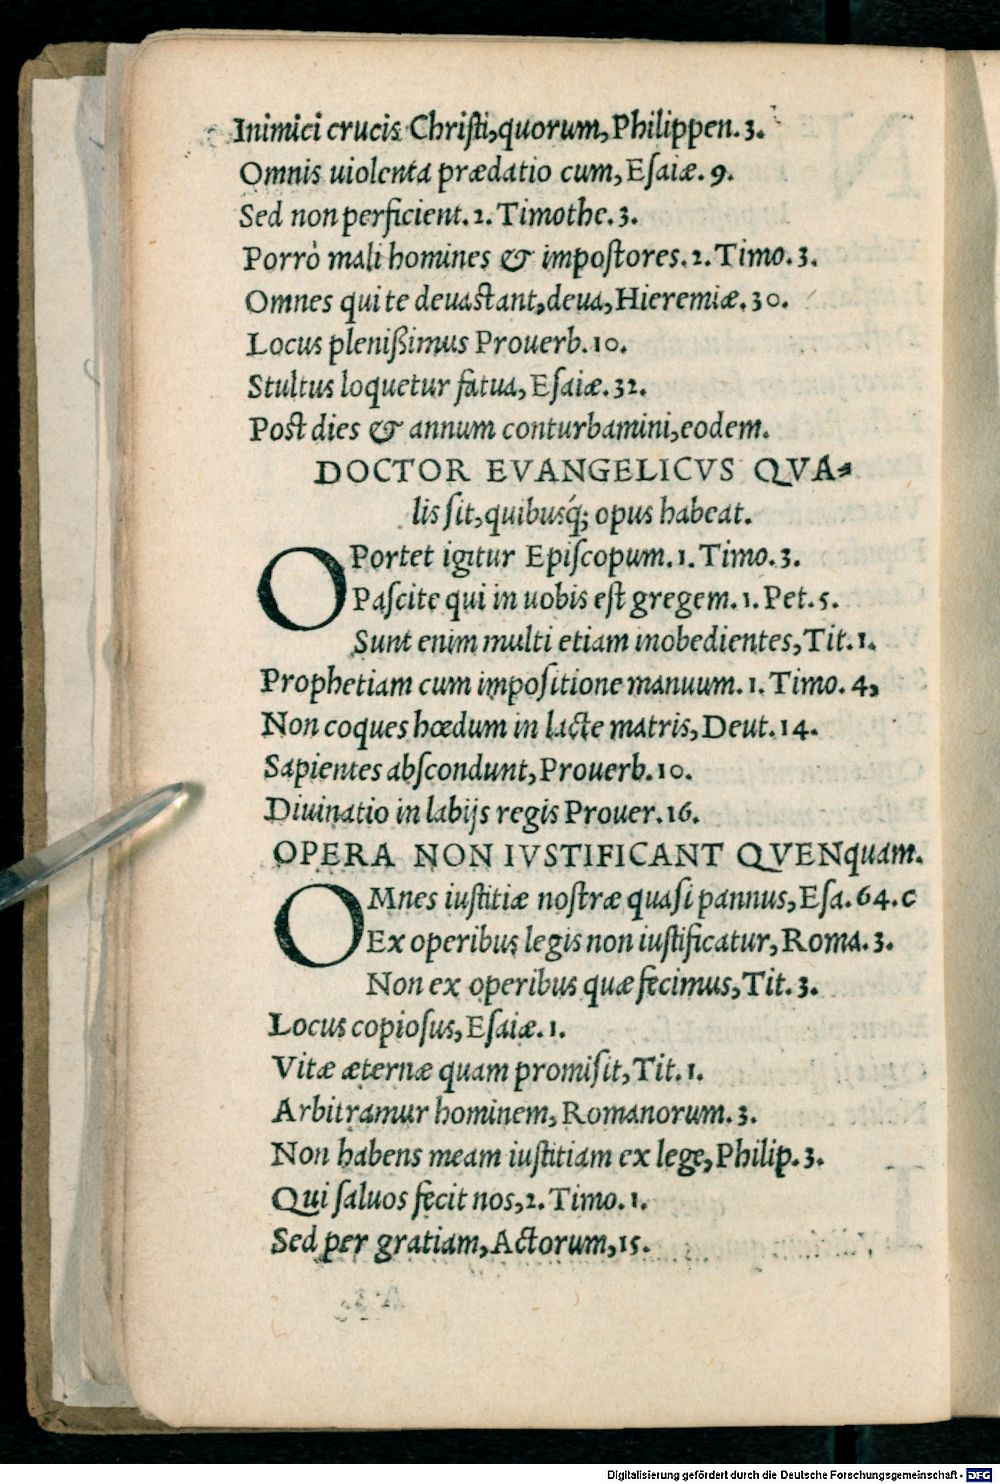 Inimici crucis Chriſti, quorum, Philippen. 3.
Omnis uiolenta prædatio cum, Eſaiæ. 9.
Sed non perficient. 2. Timothe. 3.
Porrò mali homines & impoſtores. 2. Timo. 3.
Omnes qui te deuaſtant, deua, Hieremiæ. 30.
Locus pleniſſimus Prouerb. 10.
Stultus loquetur fatua, Eſaiæ. 32.
Poſt dies & annum conturbamini, eodem.
DOCTOR EVANGELICVS QVA-
lis ſit, quibusq́; opus habeat.
OPortet igitur Epiſcopum. 1. Timo. 3.
Paſcite qui in uobis eſt gregem. 1. Pet. 5.
Sunt enim multi etiam inobedientes, Tit. 1.
Prophetiam cum impoſitione manuum. 1. Timo. 4,
Non coques hœdum in lacte matris, Deut. 14.
Sapientes abſcondunt, Prouerb. 10.
Diuinatio in labijs regis Prouer. 16.
OPERA NON IVSTIFICANT QVENquam.
OMnes iuſtitiæ noſtræ quaſi pannus, Eſa. 64. c
Ex operibus legis non iuſtificatur, Roma. 3.
Non ex operibus quæ fecimus, Tit. 3.
Locus copioſus, Eſaiæ. 1.
Vitæ æternæ quam promiſit, Tit. 1.
Arbitramur hominem, Romanorum. 3.
Non habens meam iuſtitiam ex lege, Philip. 3.
Qui ſaluos fecit nos, 2. Timo. 1.
Sed per gratiam, Actorum, 15.
Digitalisierung gefördert durch die Deutsche Forschungsgemeinschaft - DFG